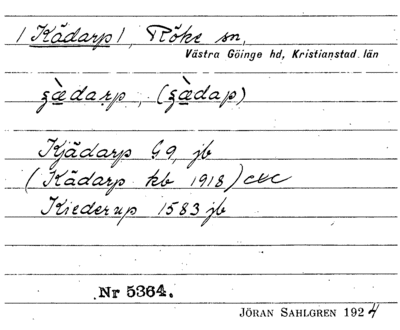 /Kädarp/, Röke sn,
Västra Göinge hd, Kristianstad län
ʒæ̀darp, (ʒæ̀dap)
Kjädarp G9, jb
(Kädarp kb 1918)
Kiederup 1583 jb
Nr 5364.
JÖRAN SAHLGREN 1924